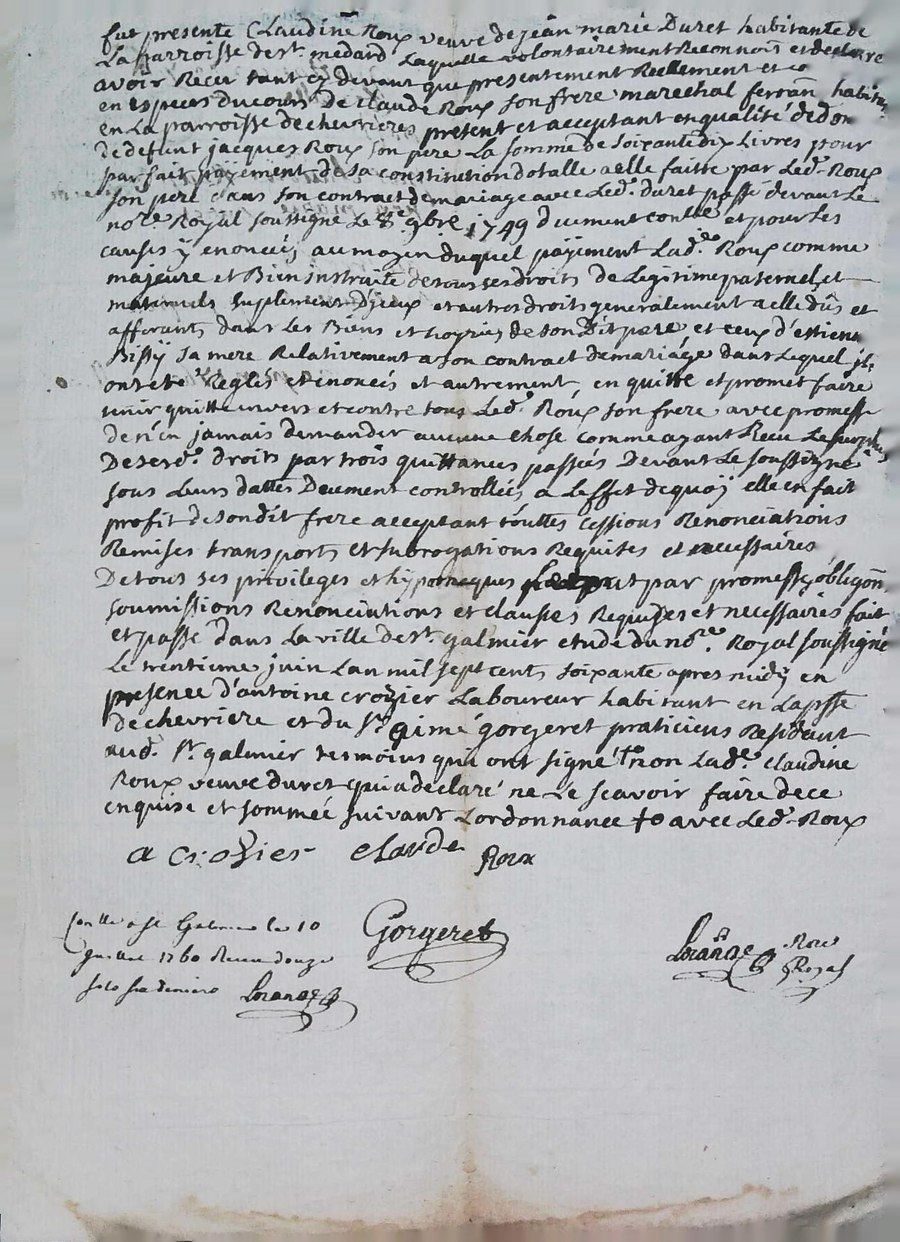 fut presente Claudine Roux veuve de jean marie Duret habitante de
La parroisse de st. medard Laquelle volontairement Reconnoist et declare
avoir Receu tant cy devant que presentement Reellement et
en especes du cours de claude Roux son frere marechal ferrant habit
en La parroisse de chevrieres present et acceptant en qualité de don
de defunt jacques Roux son pere La somme de soixante dix Livres pour
parfait payement de sa constitution dotalle a elle faitte par Led. Roux
son pere dans son contract de mariage avec Led. duret passé devant Le
nore. Royal soussigné Le 8e. 9bre 1749 duement contlé et pour Les
causes y enoncées au moyen duquel payement Lad.e Roux comme
majeure et Bien instruitte de tous ses droits de Legitime paternel et
maternels suplement d'jceux et autres droits generalement a elle dûs et
afferants dans Les Biens et hoyries de son Dit pere et ceux d'estienn
Bissy sa mere Relativement a son contract de mariage dans Lequel jls
ont eté Reglés et enoncés et autrement en quitte et promet faire
tenir quitte envers et contre tous Led. Roux son frere avec promesse
de n'en jamais demander aucune chose comme ayant Receu Le surplus
De sesd. droits par trois quittances passées Devant Le soussigné
sous Leurs dattes Deument controllées a L'effet de quoy elle en fait
profit de son dit frere acceptant touttes cessions Renonciations
Remises transports et subrogations Requises et necessaires
De tous ses privileges et hypotecques par promesses obligaon.
soumissions Renonciations et clauses Requises et necessaires fait
et passé dans La ville de st. galmier etude du nore. Royal soussigné
Le trentieme juin Lan mil sept cent soixante apres midy en
presence d'antoine crozier Laboureur habitant en La psse
de chevriere et du sr. aimé gorgeret praticiens Residant
aud. st. galmier tesmoins qui ont signé non Lad.e claudine
Roux veuve duret qui a declaré ne Le scavoir faire de ce
enquise et sommée suivant L'ordonnance avec Led. Roux
a crozier claude Roux
Contlle a st Galmier le 10 Gorgeret Lorange Nore
1760 Receu douze Royal
sols six deniers Lorange